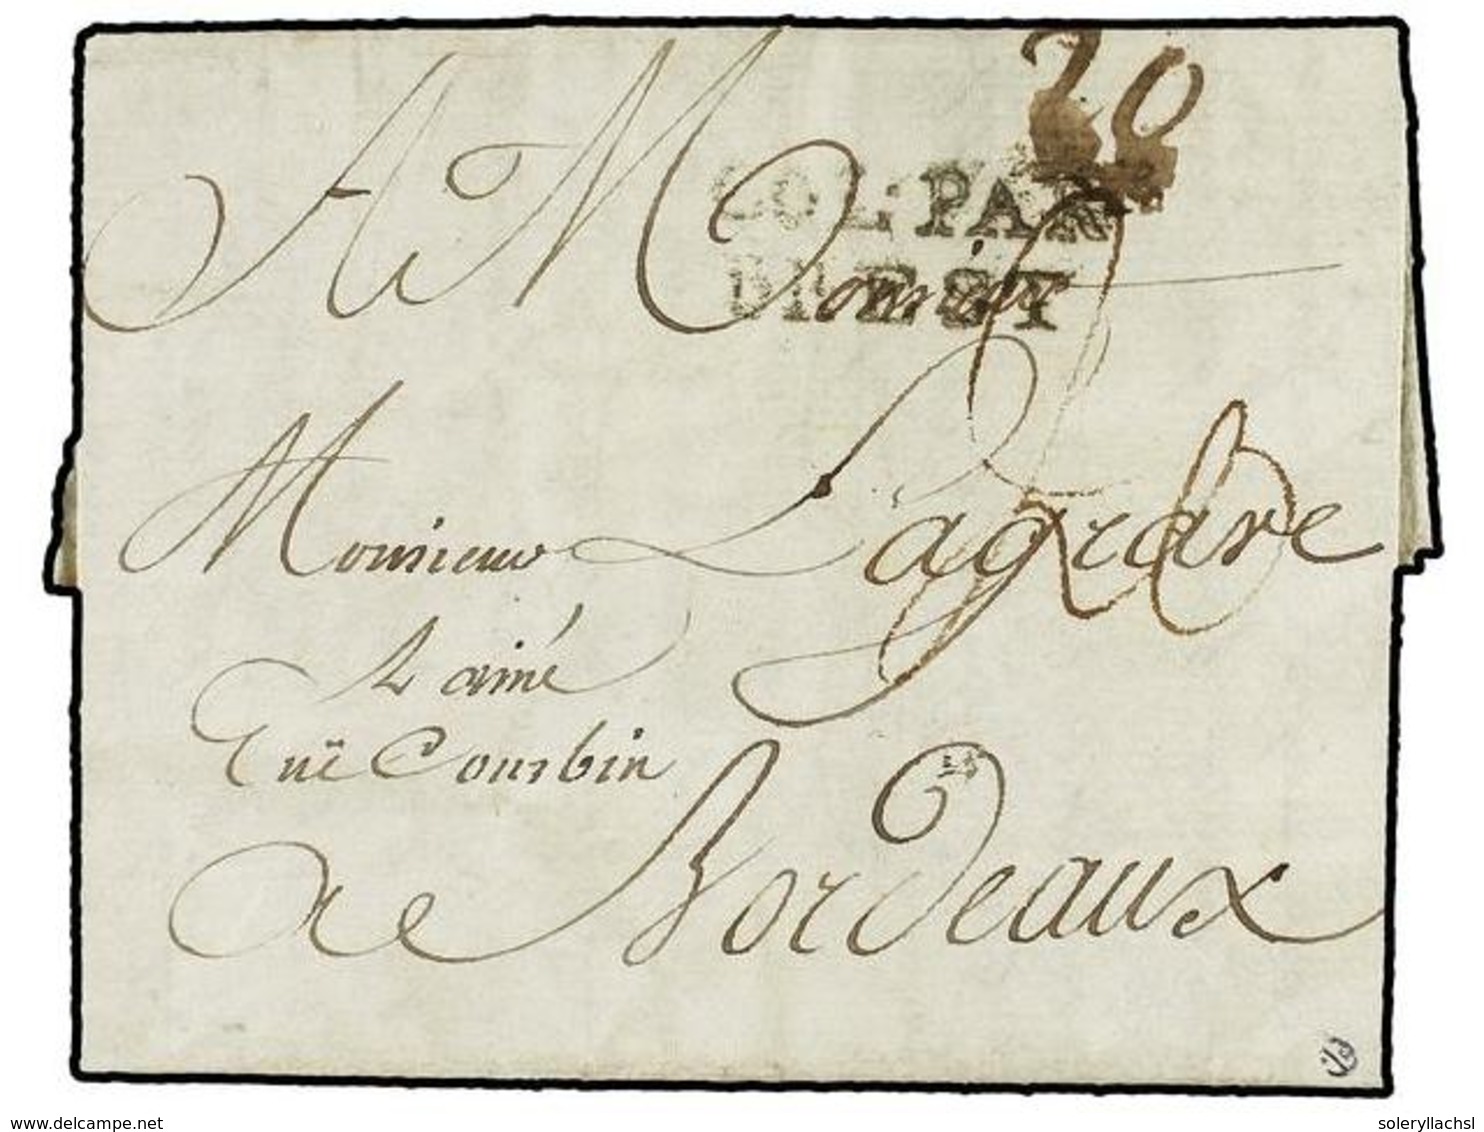 20
COL. PAR
BREST
A Monsieur
Monsieur Lagrave
L ainé
Ruë Courbin
a Bordeaux
delcampe.net
soleryllachsl